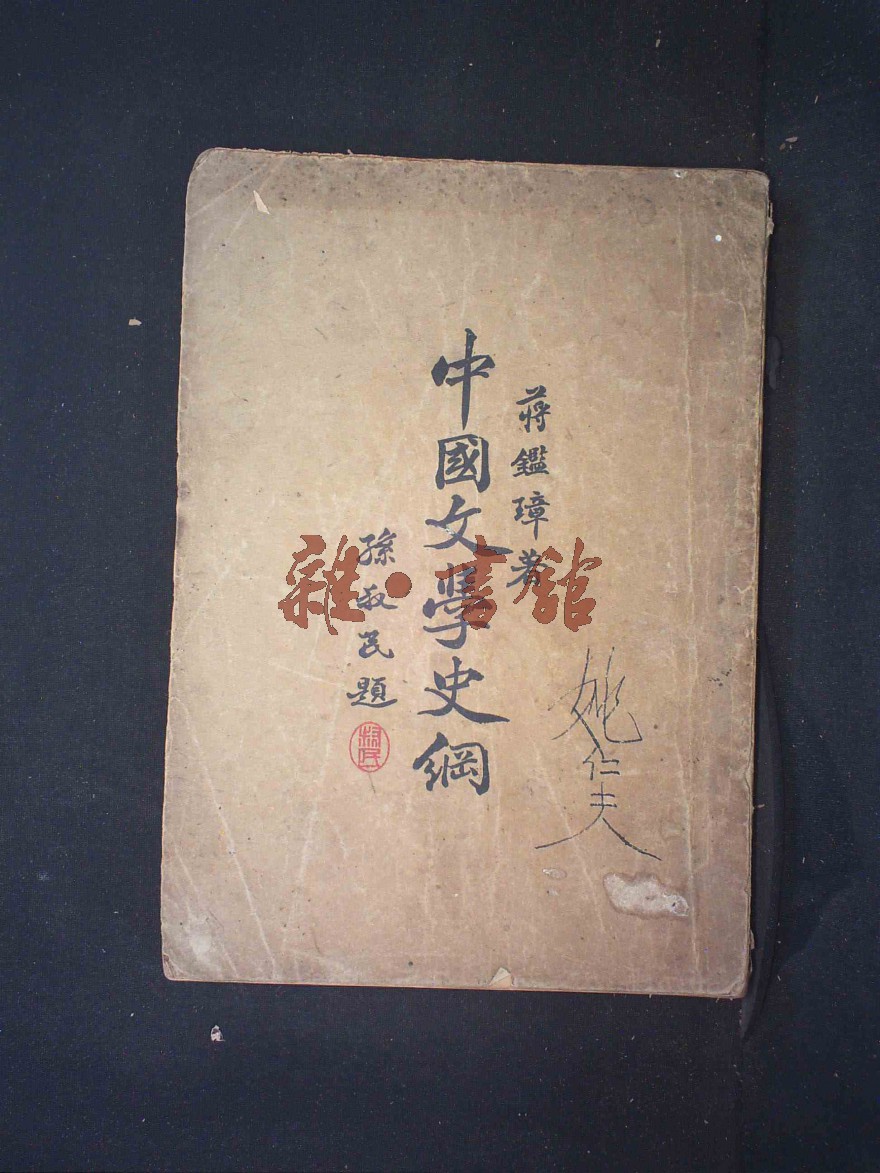 蔣鑑璋著
中國文學史綱
孫叔民題
姚仁夫
雜·書館